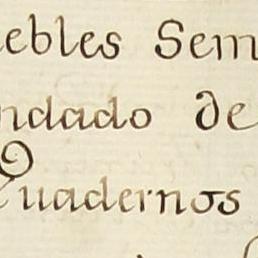 uebles Sem
ndado de
Quadernos